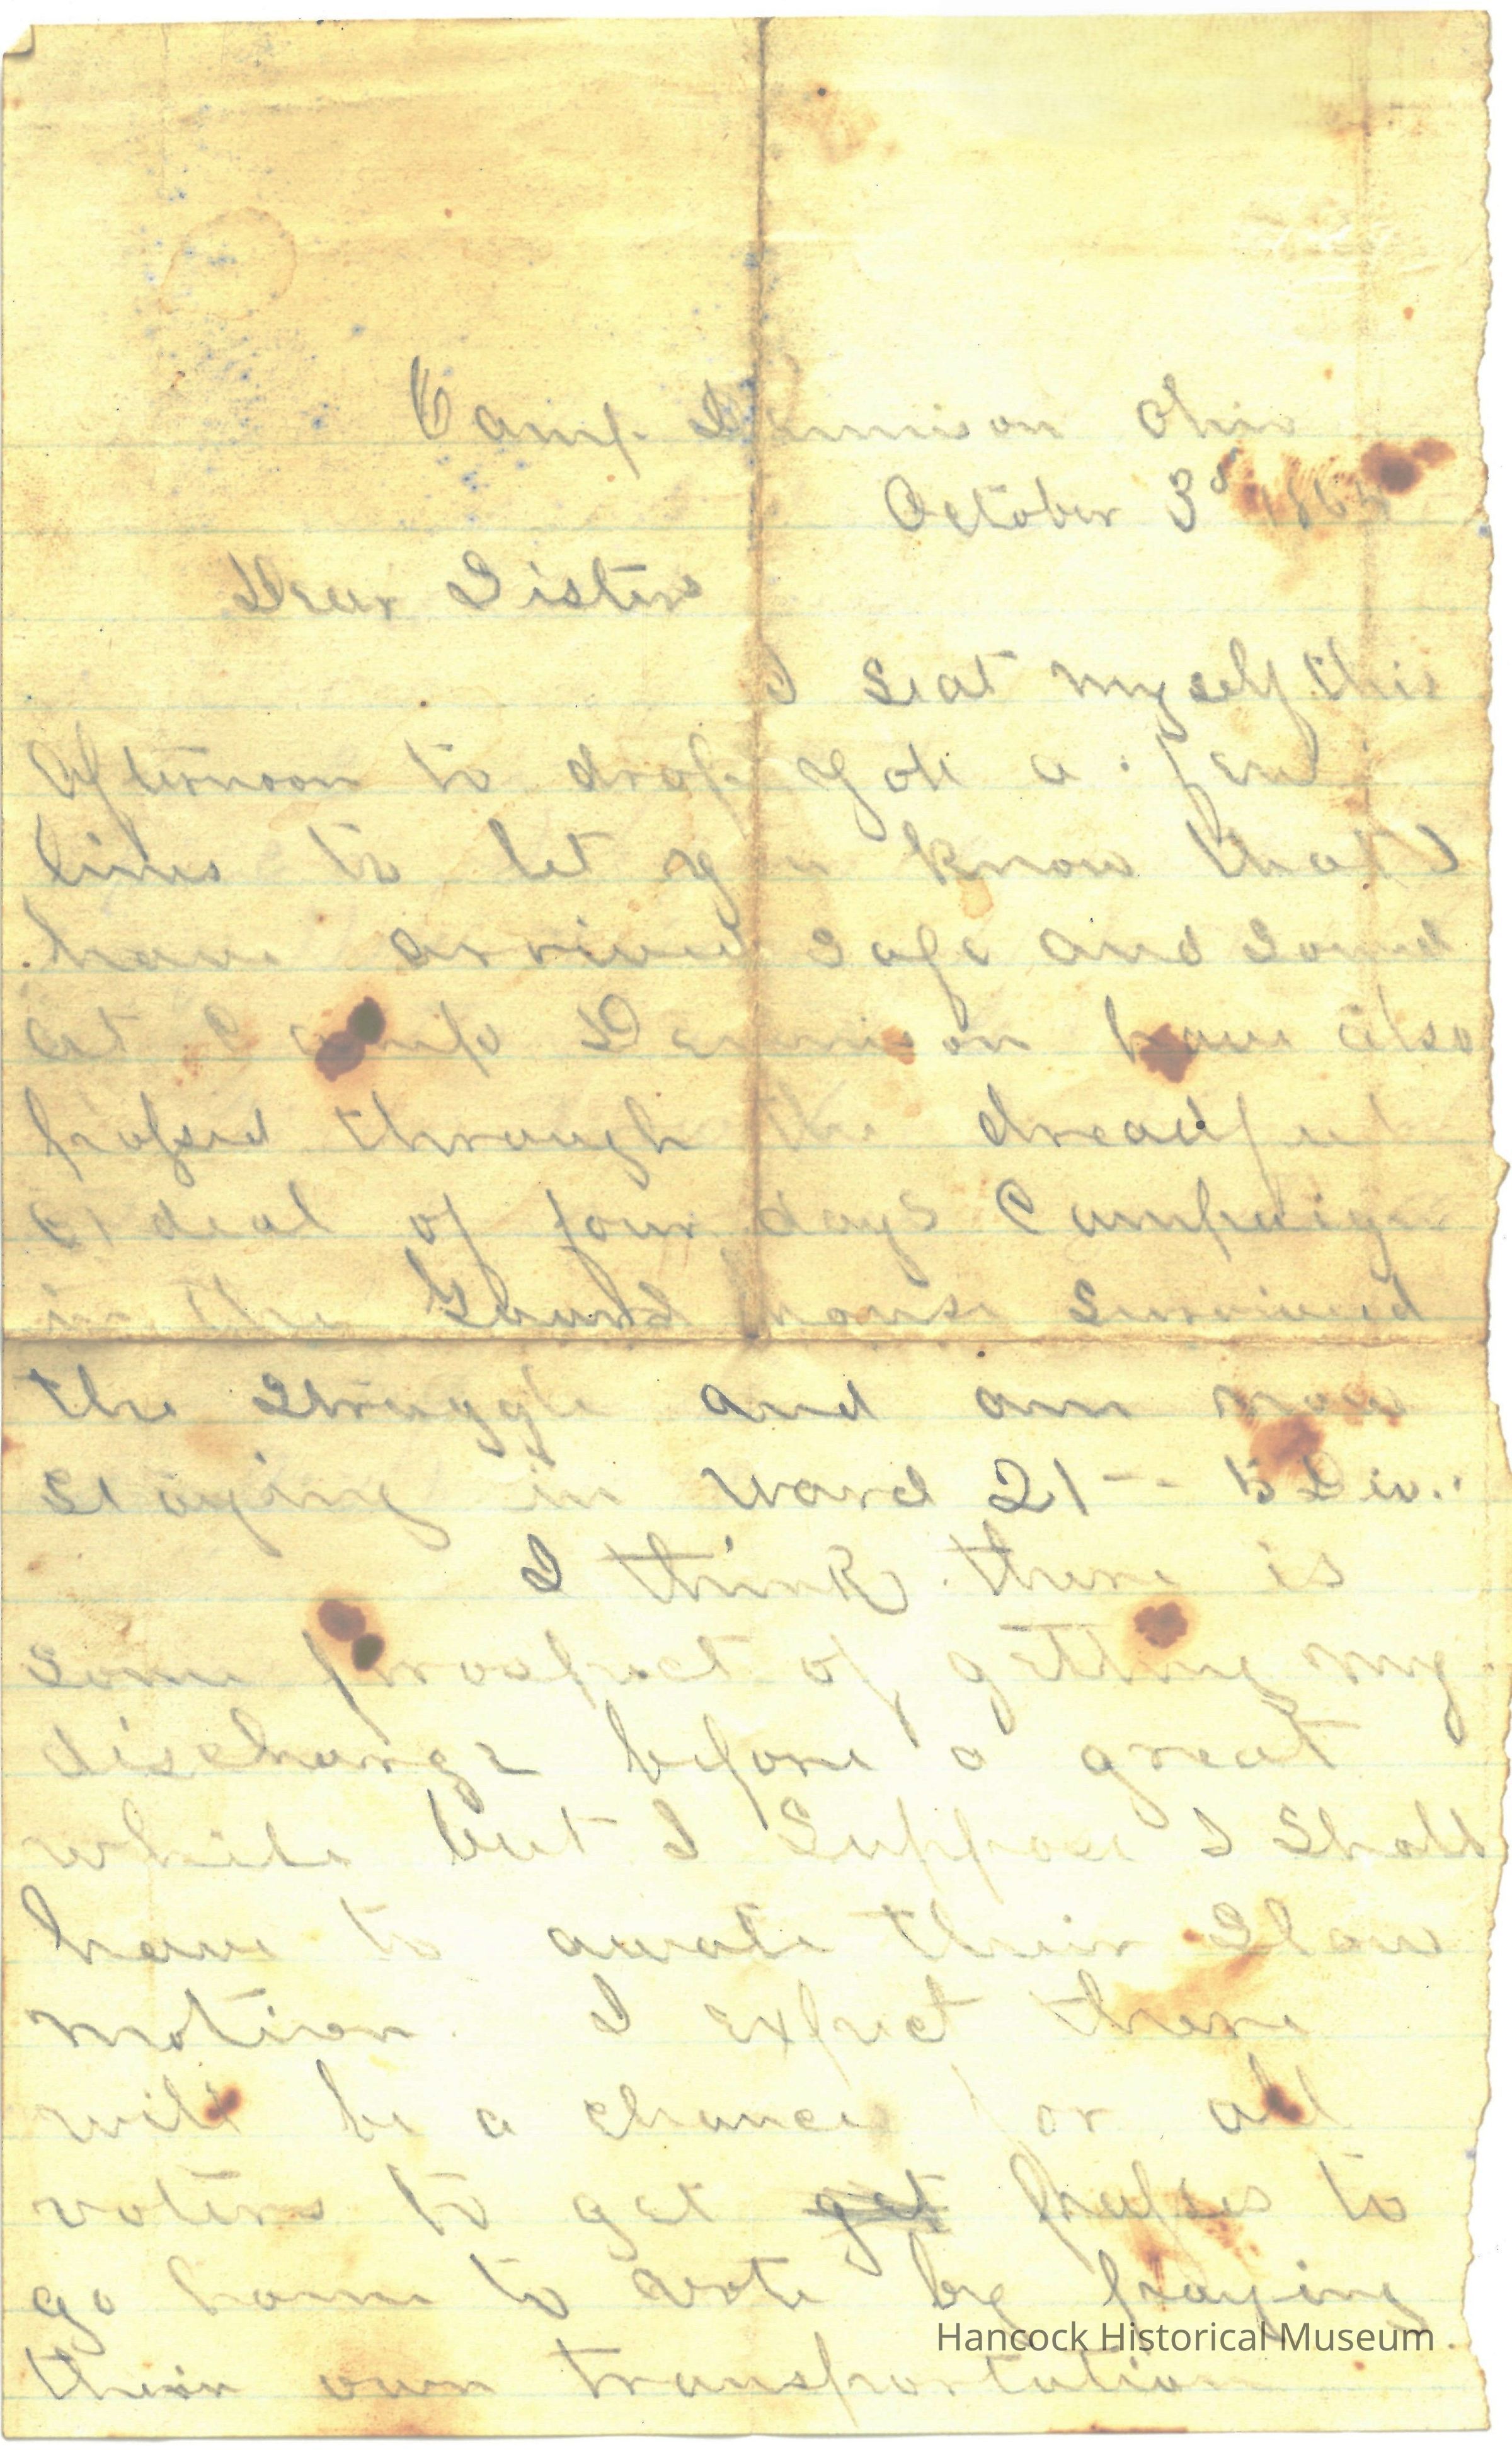 Camp Dennison Ohio
October 3d 186
Dear Sisters
I seat myself this
afternoon to drop you a few
lines to let you know that I
have arrived safe and sound
at Camp Dennison have also
passed through the dreadful
ordeal of four days Campaign
in the Guard house survived
the Struggle and am now
staying in ward 21 -- 5 Div..
I think there is
some prospect of getting my
discharge before a great
while but I Suppose I Shall
have to awate their Slow
motion. I expect there
will be a chance for all
voters to get get passes to
go home to vote by paying
their own transportation
Hancock Historical Museum